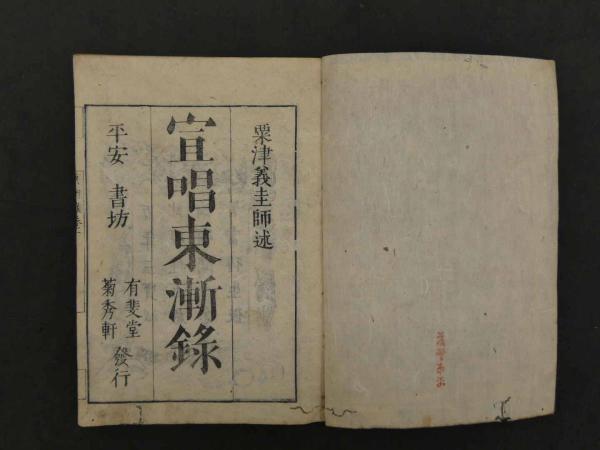 粟津義圭師述
宣唱東漸錄
平安 書坊
有斐堂
菊秀軒
發行